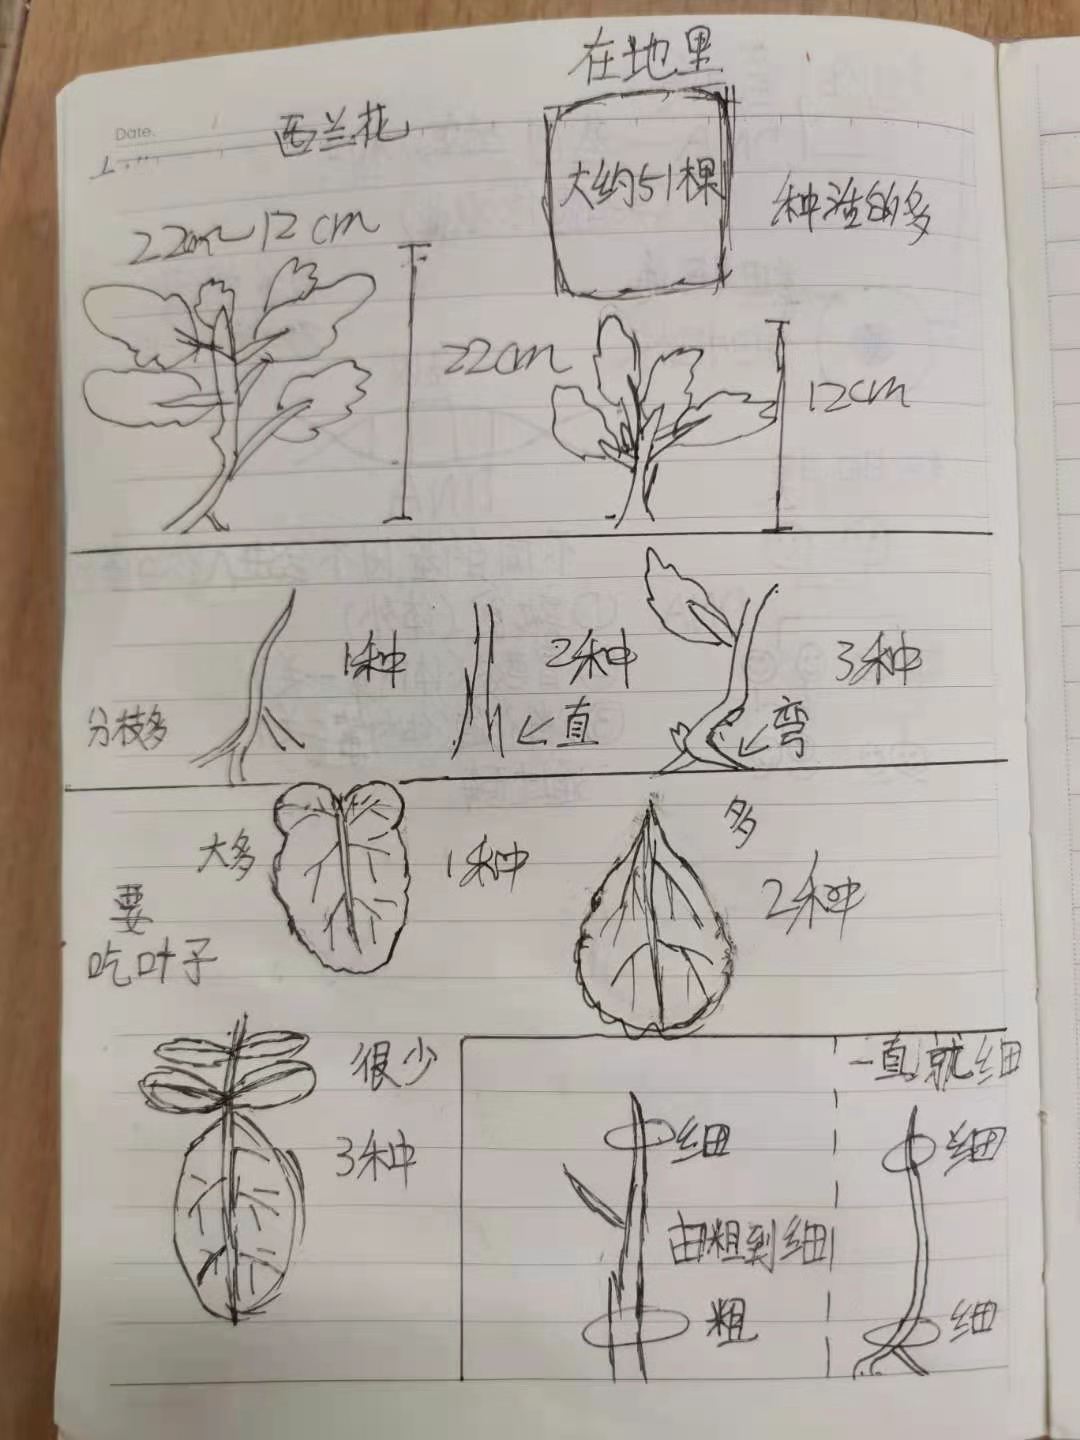 在地里
Date.
西兰花
大约51棵
种活的多
22cm~12cm
22cm
12cm
1种
2种
3种
分枝多
直
弯
多
大多
1种
2种
要
吃叶子
很少
一直就细
3种
细
细
由粗到细
粗
细